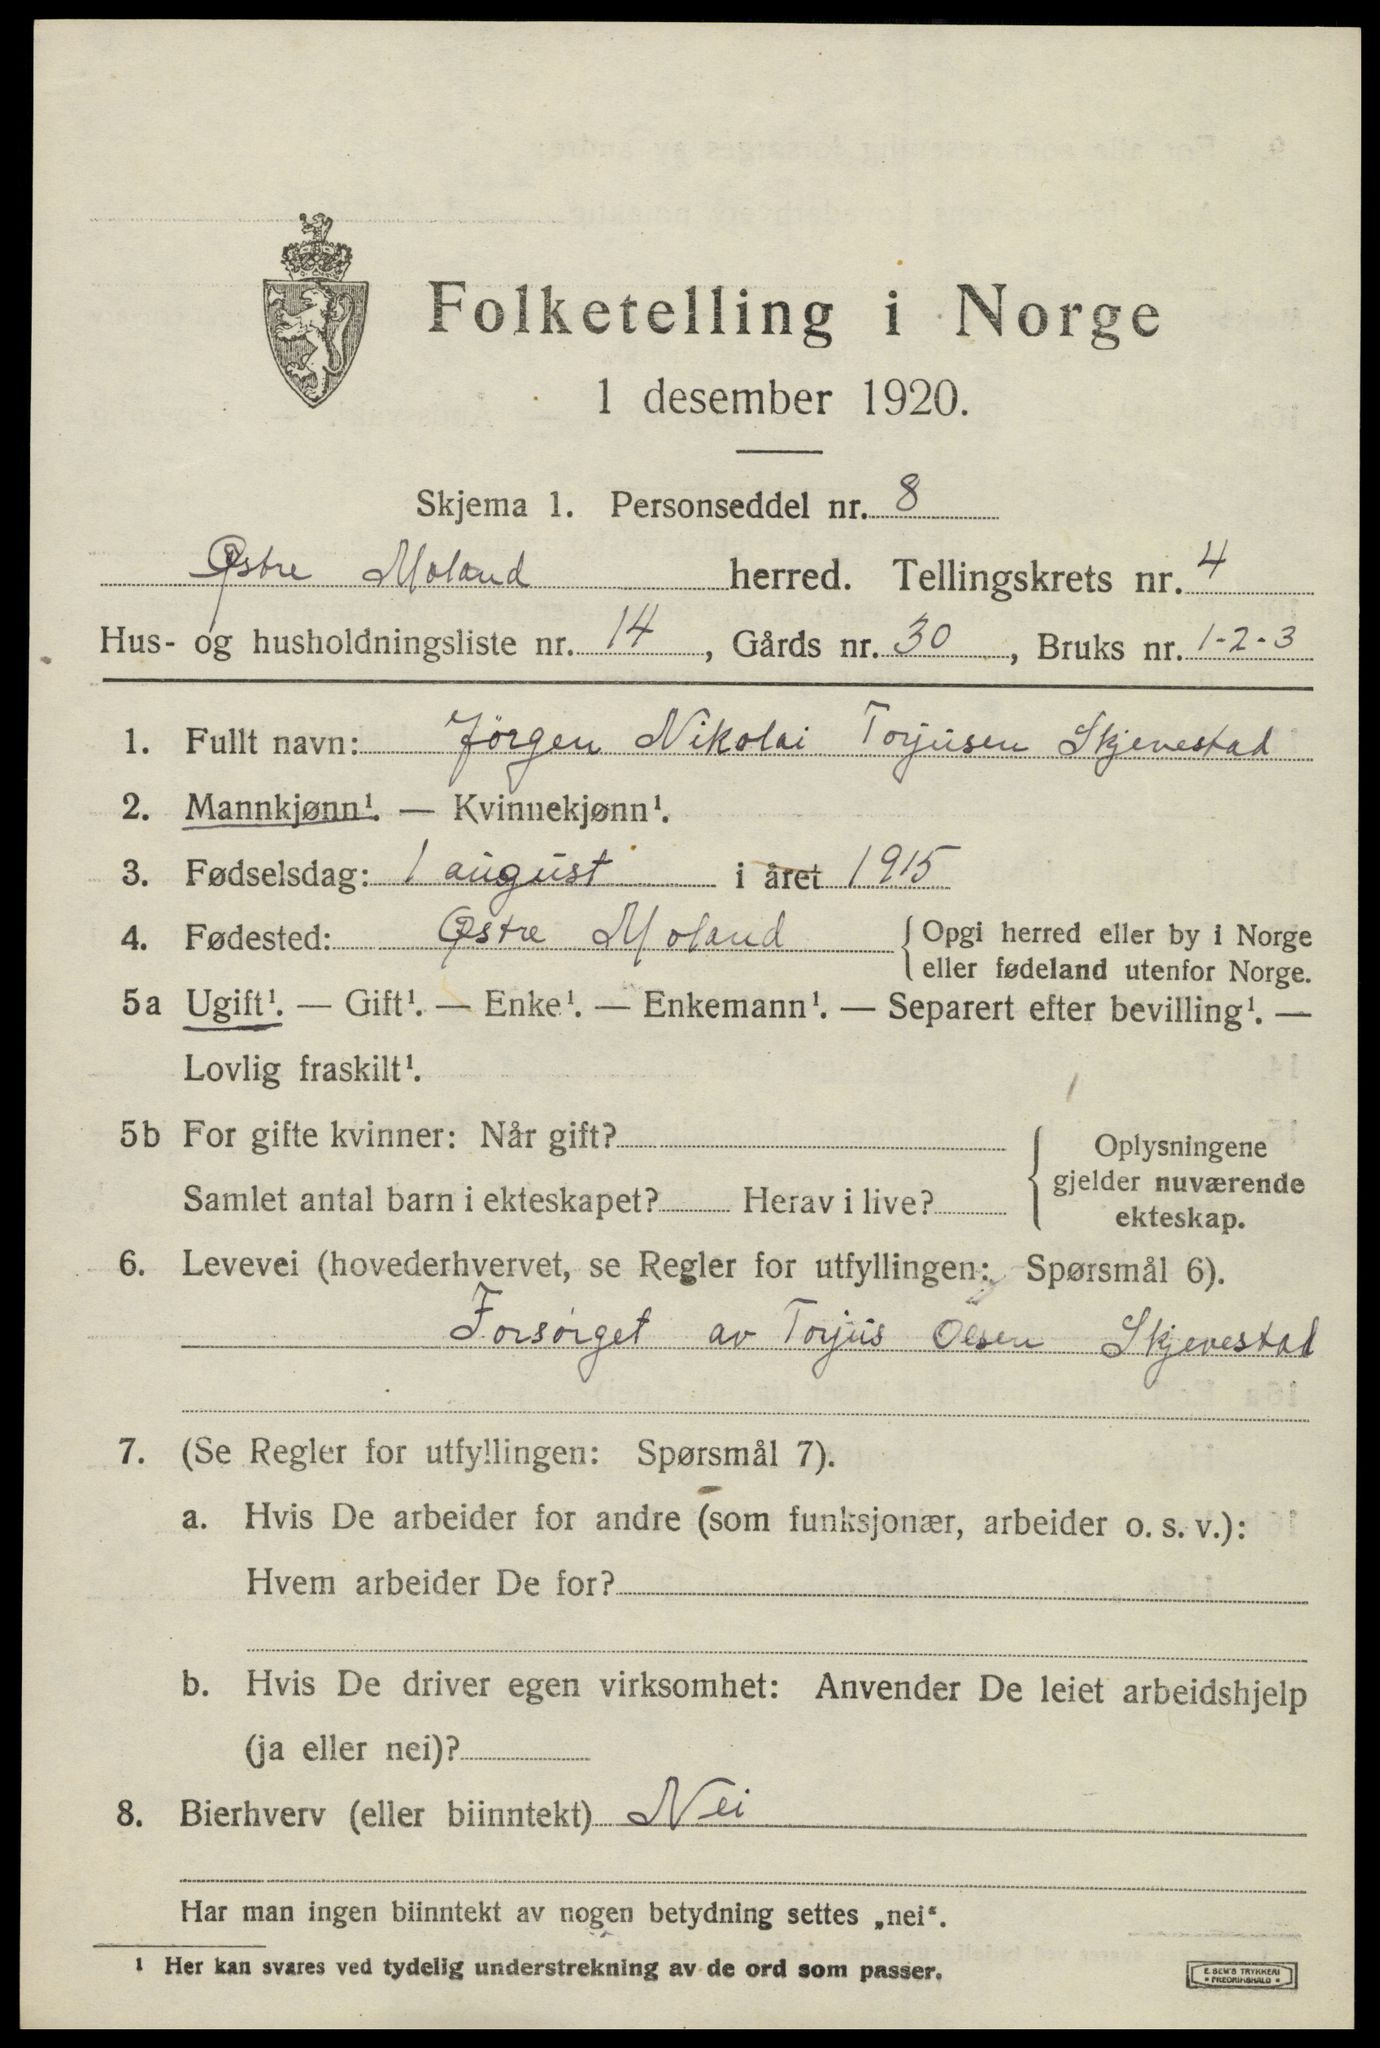 Folketelling i Norge
1 desember 1920.
Skjema 1. Personseddel nr. 8
Østre Moland herred. Tellingskrets nr. 4
Hus- og husholdningsliste nr. 14, Gårds nr. 30, Bruks nr. 1-2-3
1. Fullt navn: Jörgen Nikolai Torjusen Skjevestad
2. Mannkjønn¹. — Kvinnekjønn¹.
3. Fødselsdag: 1 august i året 1915
4. Fødested: Østre Moland { Opgi herred eller by i Norge
eller fødeland utenfor Norge.
5a Ugift¹. — Gift¹. — Enke¹. — Enkemann¹. — Separert efter bevilling¹. —
Lovlig fraskilt¹.
5b For gifte kvinner: Når gift?
Samlet antal barn i ekteskapet? Herav i live?
Oplysningene
gjelder nuværende
ekteskap.
6. Levevei (hovederhvervet, se Regler for utfyllingen: Spørsmål 6).
Forsörget av Torjus Olsen Skjevestad
7. (Se Regler for utfyllingen: Spørsmål 7).
a. Hvis De arbeider for andre (som funksjonær, arbeider o. s. v.):
Hvem arbeider De for?
b. Hvis De driver egen virksomhet: Anvender De leiet arbeidshjelp
(ja eller nei)?
8. Bierhverv (eller biinntekt) Nei
Har man ingen biinntekt av nogen betydning settes „nei“.
¹ Her kan svares ved tydelig understrekning av de ord som passer.
E. SEM'S TRYKKERI
• FREDRIKSHALD •